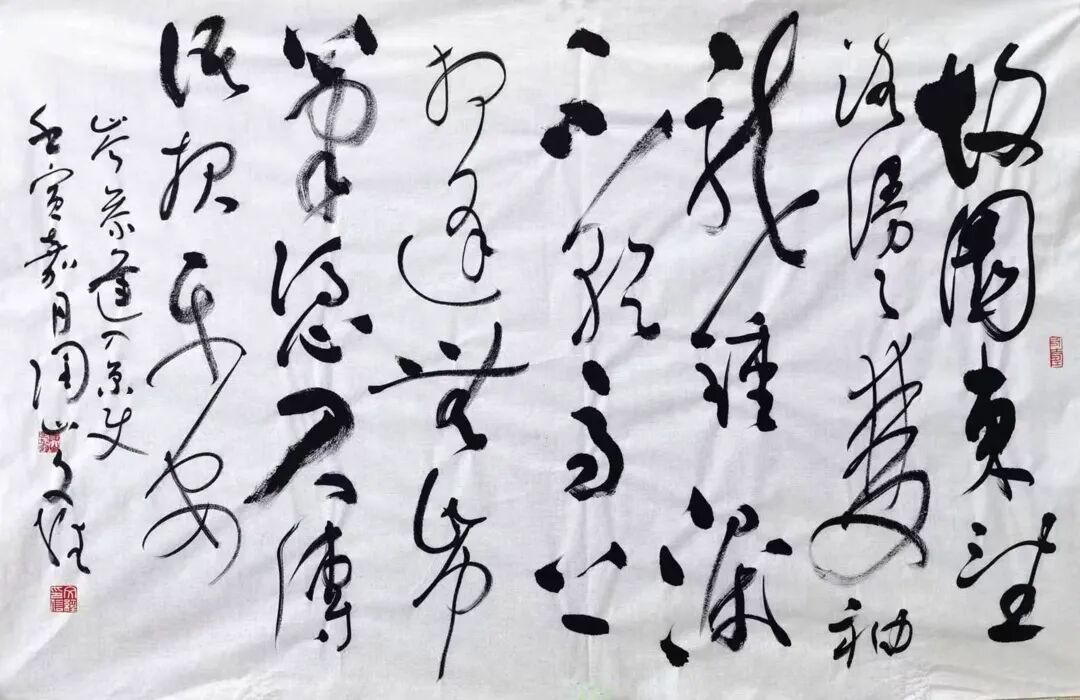 故園東望
路漫々雙袖
龍鍾淚
不乾馬上
相逢無紙
筆憑君傳
語報平安
岑參逢入京使
壬寅嘉月山文